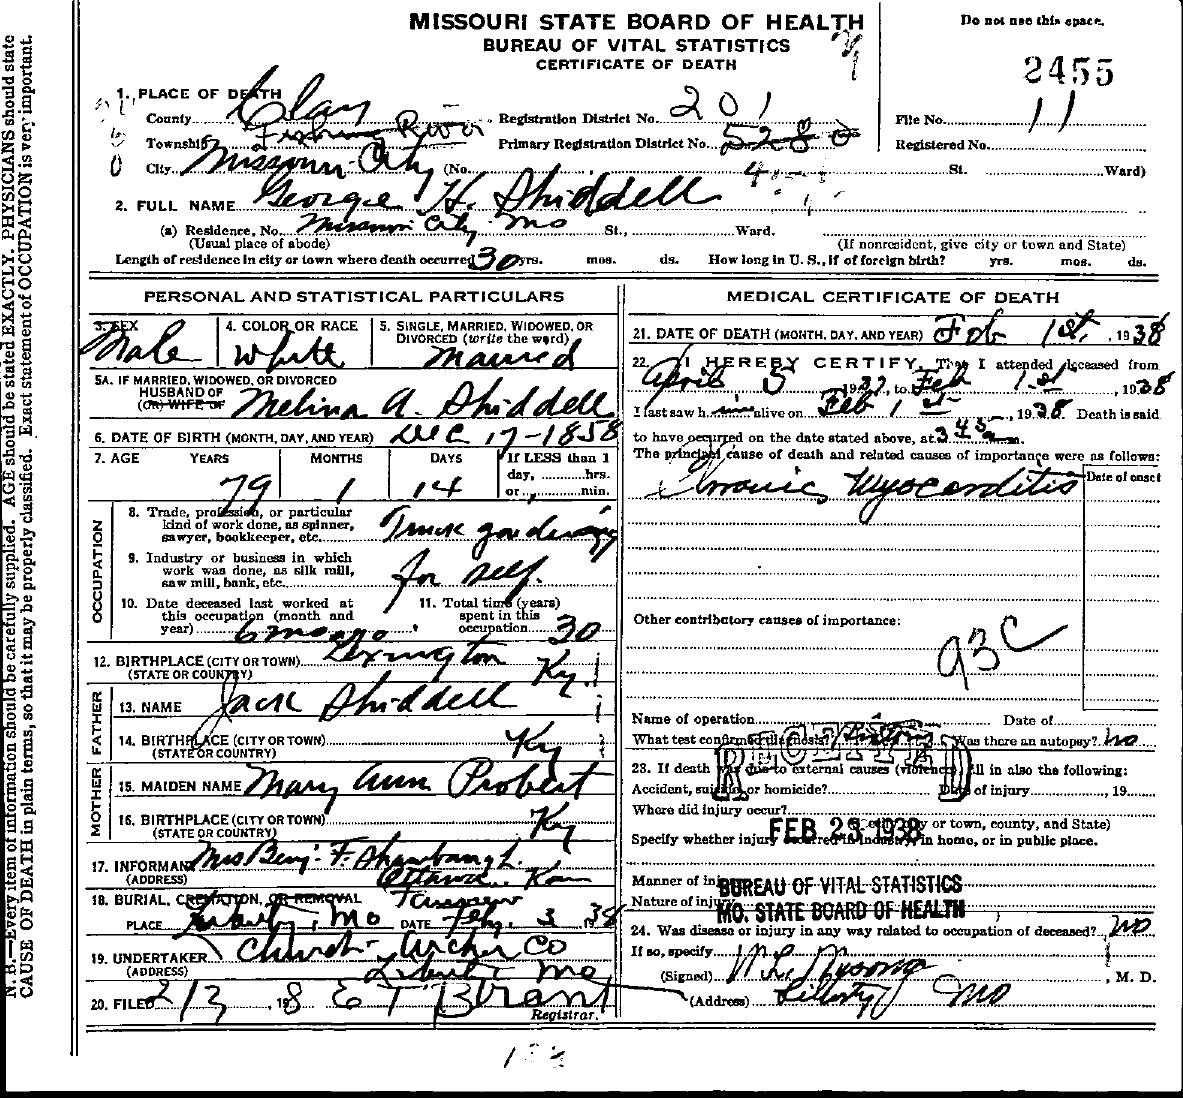 MISSOURI STATE BOARD OF HEALTH
BUREAU OF VITAL STATISTICS
CERTIFICATE OF DEATH
Do not use this space.
2455
1. PLACE OF DEATH
County Clay Registration District No. 201 File No. 11
Township Fishing River Primary Registration District No. 5280 Registered No.
City Missouri City (No. St. Ward)
2. FULL NAME George H. Shiddell
(a) Residence, No. Missouri City Mo St., Ward.
(Usual place of abode) (If nonresident, give city or town and State)
Length of residence in city or town where death occurred 30 yrs. mos. ds. How long in U. S., if of foreign birth? yrs. mos. ds.
PERSONAL AND STATISTICAL PARTICULARS
3. SEX Male
4. COLOR OR RACE White
5. SINGLE, MARRIED, WIDOWED, OR DIVORCED (write the word) Married
5A. IF MARRIED, WIDOWED, OR DIVORCED
HUSBAND OF
(OR) WIFE OF Melina A. Shiddell
6. DATE OF BIRTH (MONTH, DAY, AND YEAR) Dec 17-1858
7. AGE YEARS MONTHS DAYS If LESS than 1
day, hrs.
or min.
79 1 14
OCCUPATION
8. Trade, profession, or particular
kind of work done, as spinner,
sawyer, bookkeeper, etc. Truck gardening
9. Industry or business in which
work was done, as silk mill,
saw mill, bank, etc. for self.
10. Date deceased last worked at
this occupation (month and
year) 6 mo ago
11. Total time (years)
spent in this
occupation 30
12. BIRTHPLACE (CITY OR TOWN) Lexington
(STATE OR COUNTRY) Ky
FATHER
13. NAME Jack Shiddell
14. BIRTHPLACE (CITY OR TOWN)
(STATE OR COUNTRY) Ky
MOTHER
15. MAIDEN NAME Mary Ann Probert
16. BIRTHPLACE (CITY OR TOWN)
(STATE OR COUNTRY) Ky
17. INFORMANT Mrs Benj. F.
(ADDRESS) Ottawa Kan
18. BURIAL, CREMATION, OR REMOVAL
PLACE Liberty, Mo DATE Feb. 3, 38
19. UNDERTAKER Church-Archer Co
(ADDRESS) Liberty Mo
20. FILED 2/3, 1938 E T Brant
Registrar.
MEDICAL CERTIFICATE OF DEATH
21. DATE OF DEATH (MONTH, DAY, AND YEAR) Feb 1st, 1938
22. I HEREBY CERTIFY, That I attended deceased from
April 5 1937, to Feb 1st, 1938
I last saw him alive on Feb 1st, 1938 Death is said
to have occurred on the date stated above, at 3 45 a m.
The principal cause of death and related causes of importance were as follows:
Date of onset
Chronic Myocarditis
Other contributory causes of importance:
93C
Name of operation Date of
What test confirmed diagnosis? Was there an autopsy? No
23. If death was due to external causes (violence) fill in also the following:
Accident, suicide, or homicide? Date of injury , 19
Where did injury occur?
(Specify city or town, county, and State)
Specify whether injury occurred in industry, in home, or in public place.
Manner of injury
Nature of injury
RECEIVED
FEB 23 1938
BUREAU OF VITAL STATISTICS
MO. STATE BOARD OF HEALTH
24. Was disease or injury in any way related to occupation of deceased? No
If so, specify
(Signed) , M. D.
(Address) Liberty Mo
N. B.—Every item of information should be carefully supplied. AGE should be stated EXACTLY. PHYSICIANS should state
CAUSE OF DEATH in plain terms, so that it may be properly classified. Exact statement of OCCUPATION is very important.